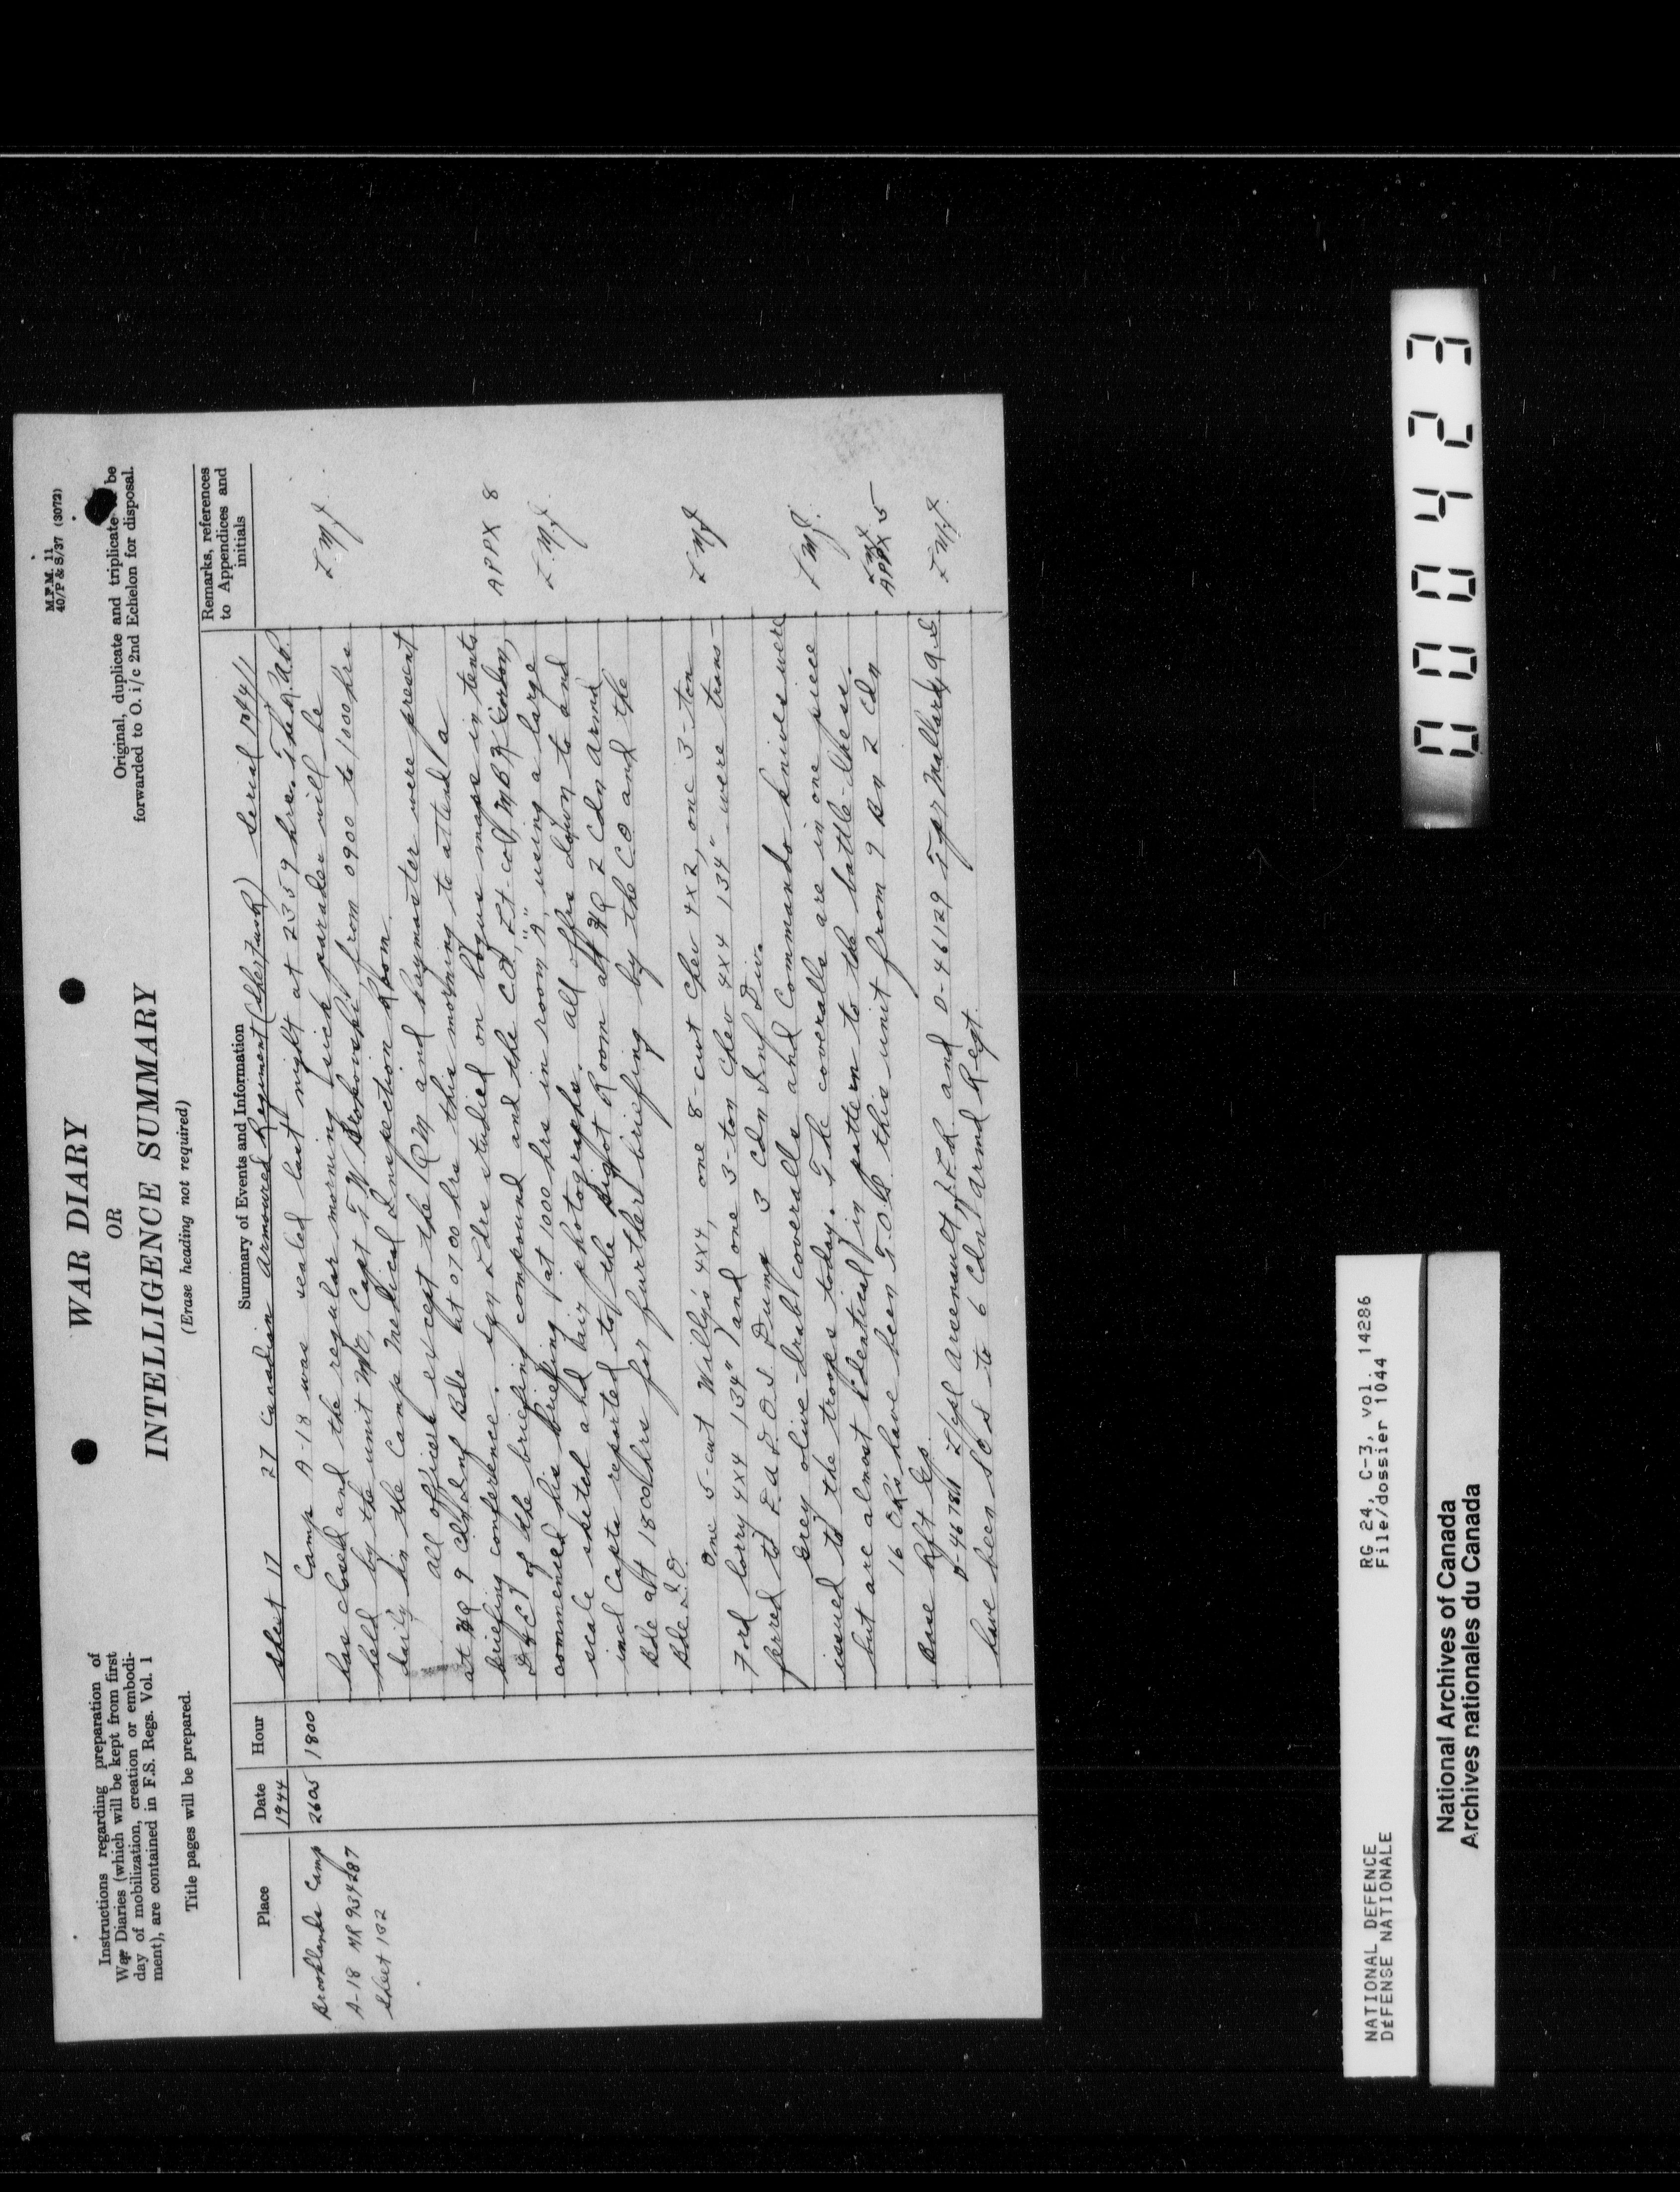 M.F.M. 11
40/P & S/37 (3072)
Instructions regarding preparation of
War Diaries (which will be kept from first
day of mobilization, creation or embodi-
ment), are contained in F.S. Regs. Vol. 1
Title pages will be prepared.
WAR DIARY
OR
INTELLIGENCE SUMMARY
(Erase heading not required)
Original, duplicate and triplicate to be
forwarded to O. i/c 2nd Echelon for disposal.
Place
Date
Hour
Summary of Events and Information
Remarks, references
to Appendices and
initials
1944
Sheet 17 27 Canadian Armoured Regiment (Sher Fus R) Serial 1044/1
Brooklands Camp
A-18 MR 934287
Sheet 132
26 05
1800
Camp A-18 was sealed last night at 2359 hrs. The
has closed and the regular morning sick parades will be
held by the unit MO, Capt from 0900 to 1000 hrs
daily in the Camp Medical Inspection Room.
L.M.J.
All officers except the QM and Paymaster were present
at HQ 9 Cdn Inf Bde at 0700 hrs this morning to attend a
briefing conference. Sqn Ldrs studied on bogus maps in tents
D & C of the briefing compound and the CO, Lt-Col, MB Gordon,
commenced his briefing at 1000 hrs in room "A", using a large
scale sketch and air photographs. All offrs down to and
incl Capts reported to the Bigot Room at HQ 2 Cdn Armd
Bde at 1800 hrs for further briefing by the CO and the
Bde I.O.
APPX 8
L.M.J.
One 5-cwt Willys 4x4, one 8-cwt Chev 4x2, one 3-ton
Ford lorry 4x4 134" and one 3-ton Chev 4x4 134" were trans-
ferred to Dump 3 Cdn Inf Div.
L.M.J.
Grey olive-drab coveralls and Commando knives were
issued to the troops today. The coveralls are in one piece
but are almost identical in pattern to the battle-dress.
L.M.J.
16 ORs have been T.O.S. this unit from 9 Bn 2 Cdn
Base Rft Gp.
L.M.J.
APPX 5
L/Cpl Arsenault, and D-46129 Tpr Mallard,
have been SOS to 6 Cdn Armd Regt.
L.M.J.
00423
NATIONAL DEFENCE
DÉFENSE NATIONALE
RG 24, C-3, vol. 14286
File/dossier 1044
National Archives of Canada
Archives nationales du Canada